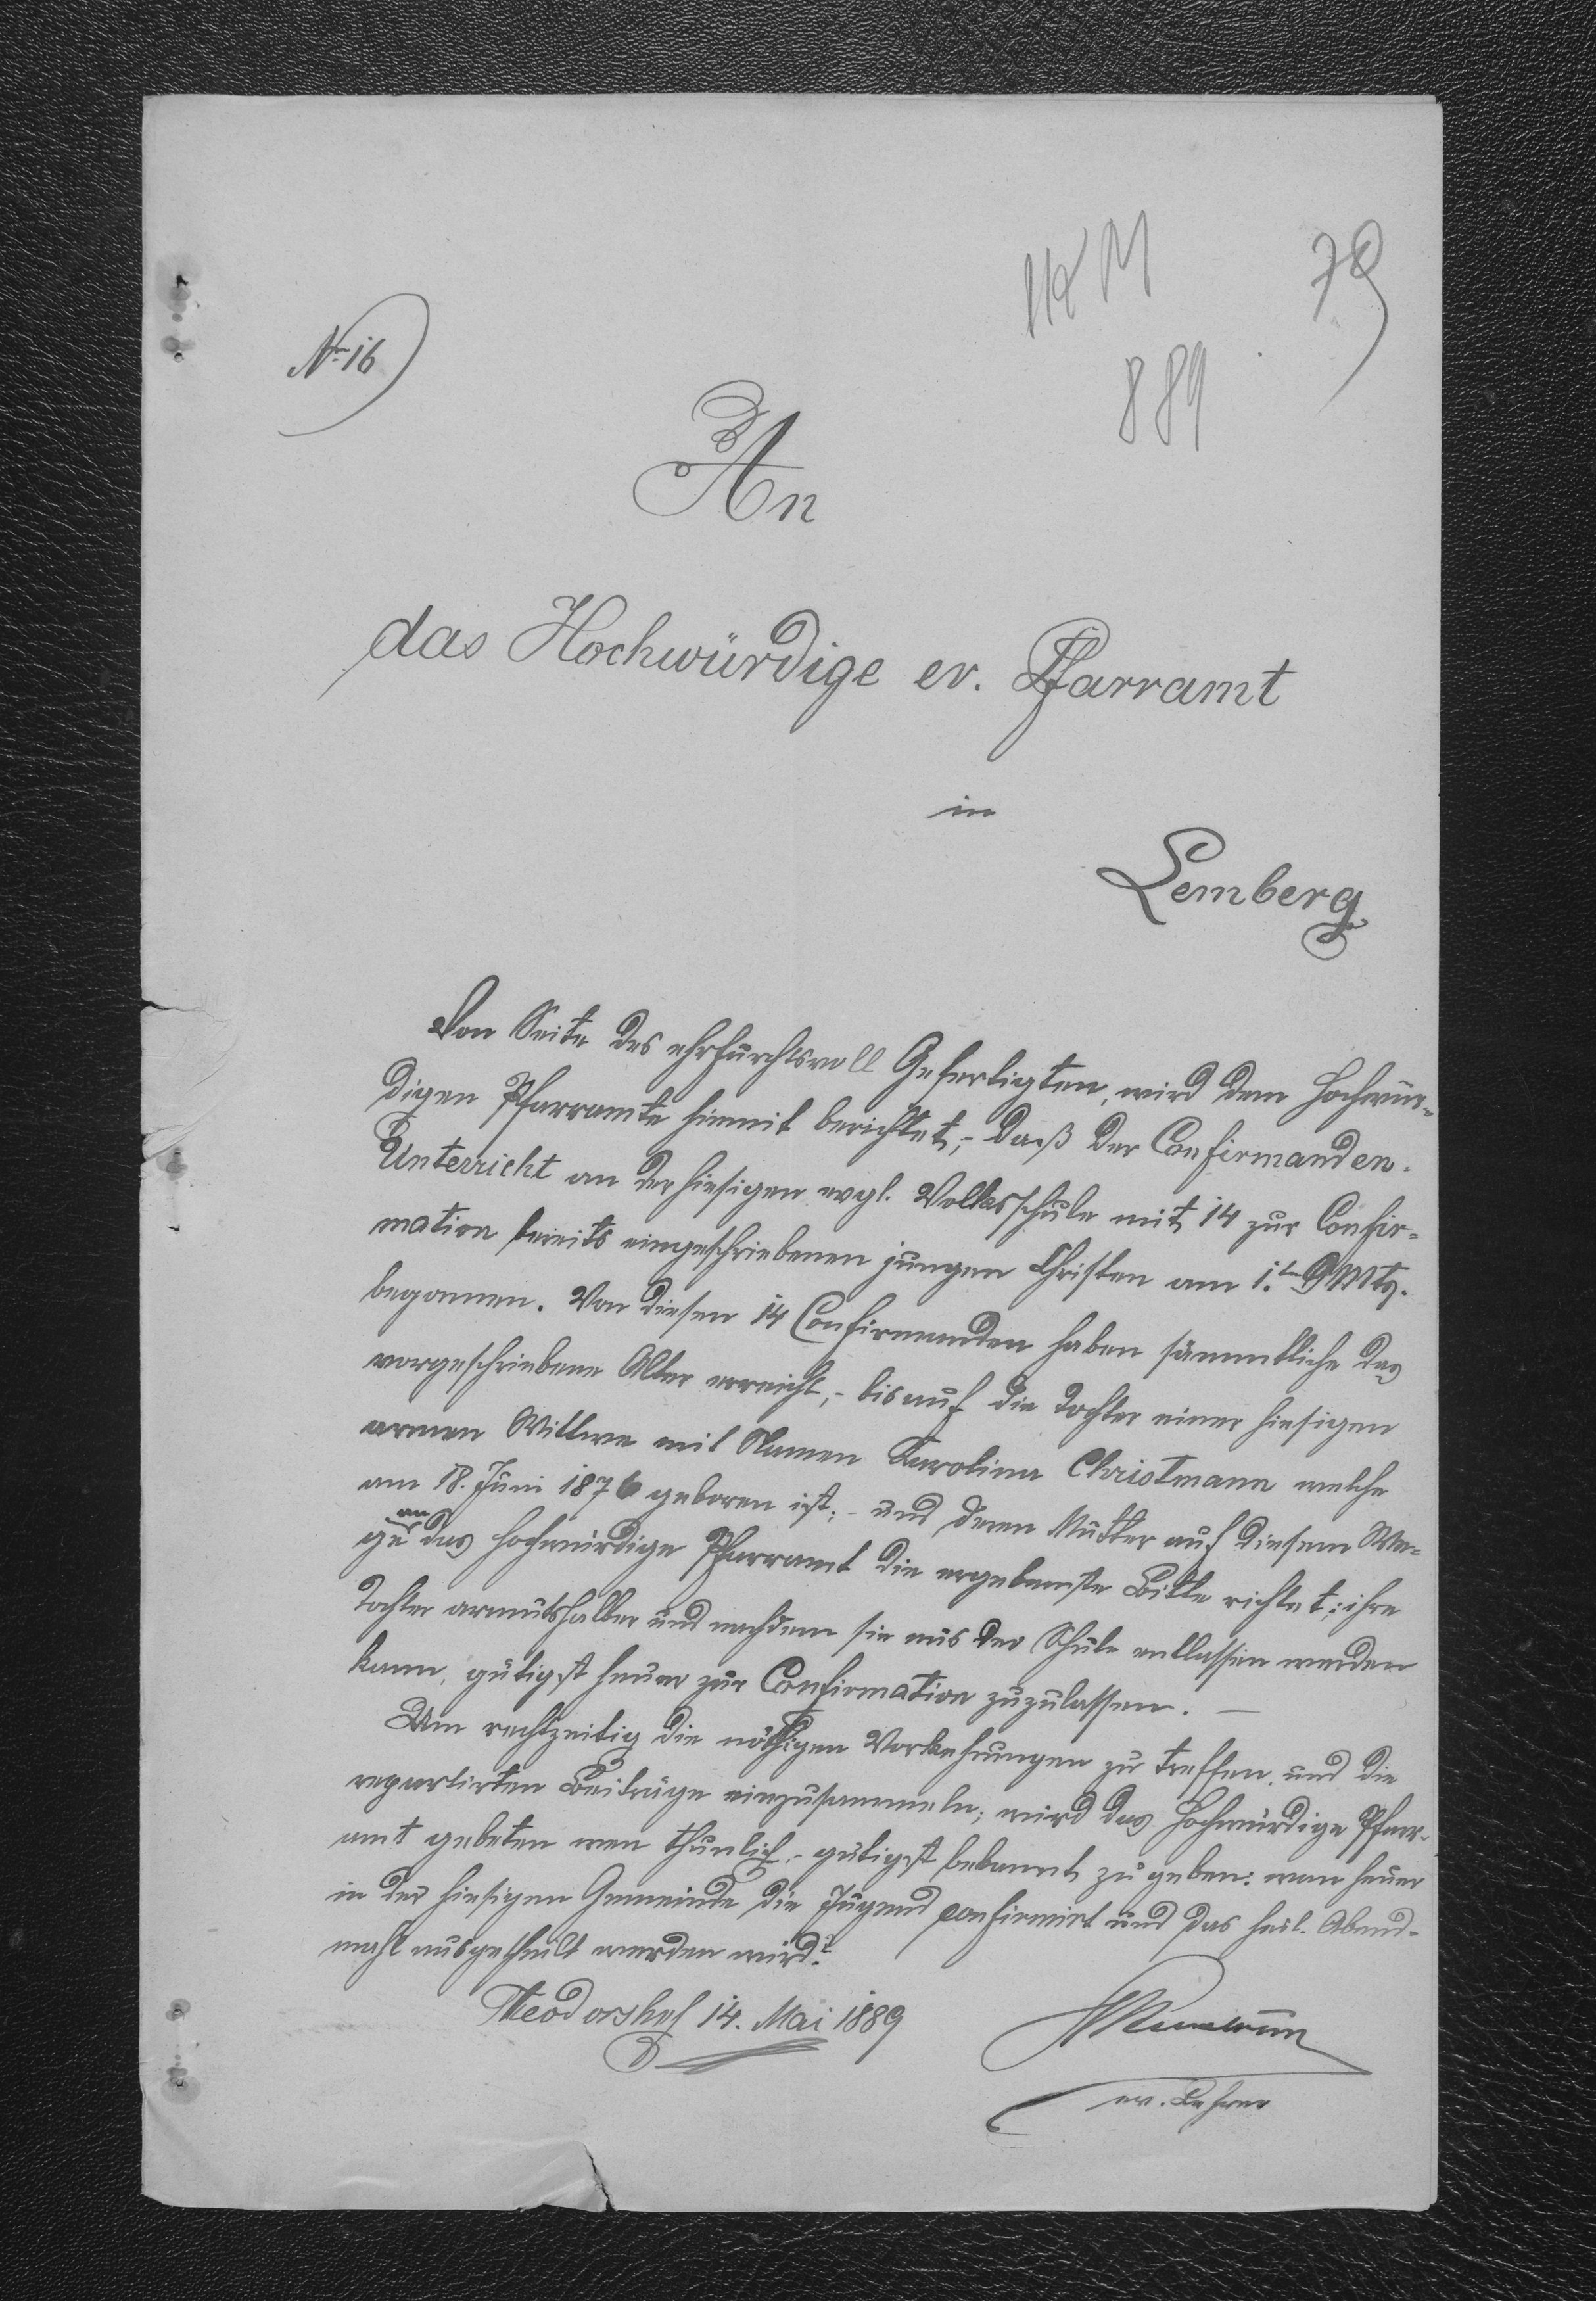 79
889
Nr 16
An
das Hochwürdige ev. Pfarramt
in
Lemberg
Von Seite des ehrfurchtsvoll Gefertigten, wird dem Hochwür-
digen Pfarramte hiemit berichtet;- daß der Confirmanden-
Unterricht an der hiesigen evgl. Volksschule mit 14 zur Confir-
mation bereits eingeschriebenen jungen Christen am 1.ten D Mts.
begonnen. Von diesen 14 Confirmanden haben sämmtliche das
vorgeschriebene Alter erreicht,- bis auf die Tochter einer hiesigen
armen Wittwe mit Namen Karolina Christmann welche
am 18. Juni 1876 geboren ist;- und deren Mutter auf diesem We-
ge an das Hochwürdige Pfarramt die ergebenste Bitte richtet; ihre
Tochter armutshalber und nachdem sie aus der Schule entlassen werden
kann, gütigst heuer zur Confirmation zuzulassen. —
Um rechtzeitig die nöthigen Vorkehrungen zu treffen und die
repartirten Beiträge einzusammeln; wird das Hochwürdige Pfarr-
amt gebeten wen thunlich,- gütigst bekannt zu geben: wan heuer
in der hiesigen Gemeinde die Jugend confirmirt und das heil. Abend-
mahl ausgetheilt werden wird?
Teodorshof 14. Mai 1889
ev. Lehrer